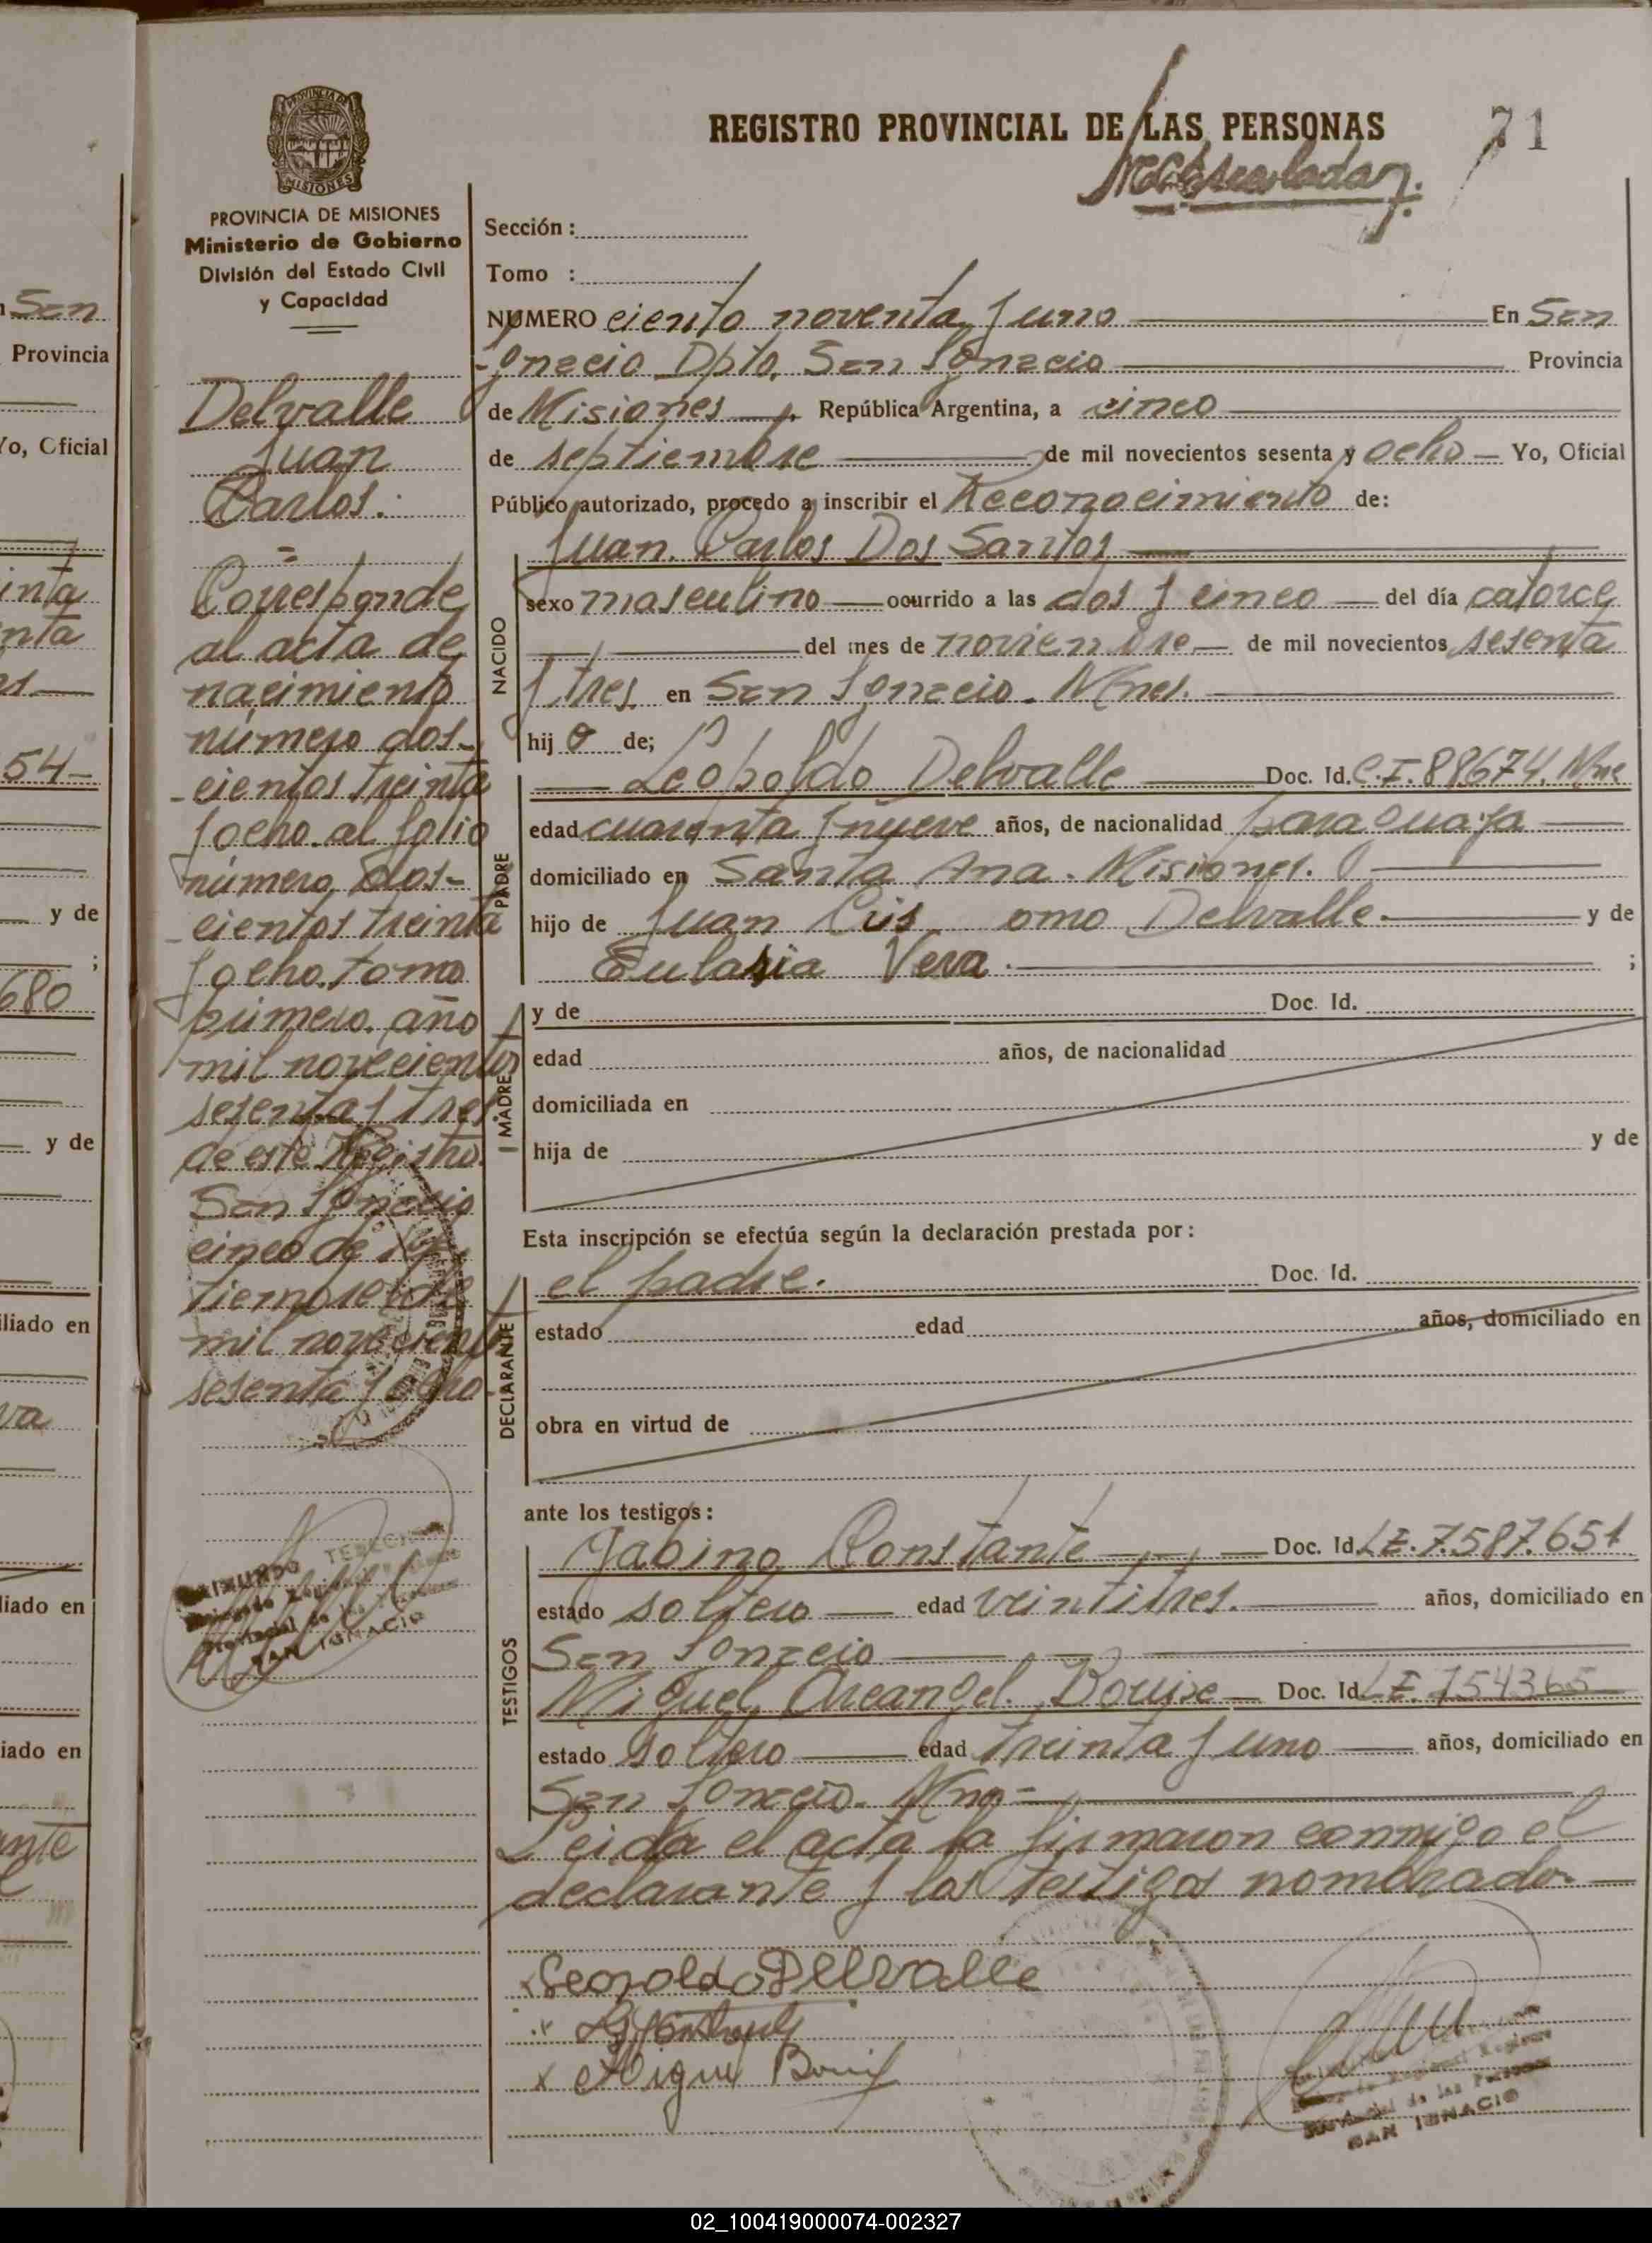 REGISTRO PROVINCIAL DE LAS PERSONAS
71
PROVINCIA DE MISIONES
Ministerio de Gobierno
División del Estado Civil
y Capacidad
Delvalle
Juan
Carlos.
Corresponde
al acta de
nacimiento
número dos-
cientos treinta
y ocho al folio
número dos-
cientos treinta
y ocho. tomo
primero. año
mil novecientos
sesenta y tres
de este Registro.
San Ignacio
cinco de Sep
tiembre de
mil novecientos
sesenta y ocho.
SAN IGNACIO
Sección:
Tomo :
NUMERO ciento noventa y uno En San
Ignacio Dpto. San Ignacio Provincia
de Misiones República Argentina, a cinco
de septiembre de mil novecientos sesenta y ocho Yo, Oficial
Público autorizado, procedo a inscribir el Reconocimiento de:
Juan Carlos Dos Santos
NACIDO
sexo masculino ocurrido a las dos y cinco del día catorce
del mes de noviembre de mil novecientos sesenta
y tres en San Ignacio. Mnes.
hij o de;
PADRE
Leopoldo Delvalle Doc. Id. C.I. 88674. Mne
edad cuarenta y nueve años, de nacionalidad paraguaya
domiciliado en Santa Ana. Misiones.
hijo de Juan Cris omo Delvalle. y de
Eulasia Vera. ;
MADRE
y de Doc. Id.
edad años, de nacionalidad
domiciliada en
hija de y de
Esta inscripción se efectúa según la declaración prestada por:
DECLARANTE
el padre. Doc. Id.
estado edad años, domiciliado en
obra en virtud de
ante los testigos:
TESTIGOS
Gabino Constante Doc. Id. L.E. 7.587.651
estado soltero edad veintitres. años, domiciliado en
San Ignacio
Miguel Arcangel Doc. Id. L.E. 754365
estado soltero edad treinta y uno años, domiciliado en
San Ignacio. Mnes
Leida el acta la firmaron conmigo el
declarante y los testigos nombrados.
Leopoldo Delvalle
Miguel
SAN IGNACIO
n San
Provincia
Yo, Oficial
54
y de
;
680
y de
liado en
liado en
iado en
02_100419000074-002327